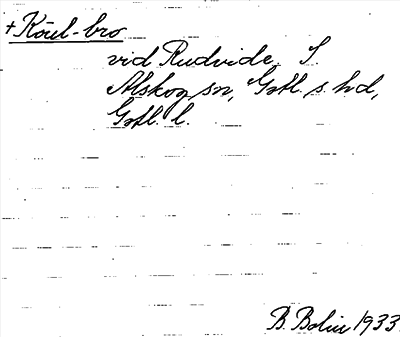 + Kóul-bro
vid Rudvide, S
Alskog sn, Gotl. s. hd,
Gotl. l.
B. Bolin 1933.